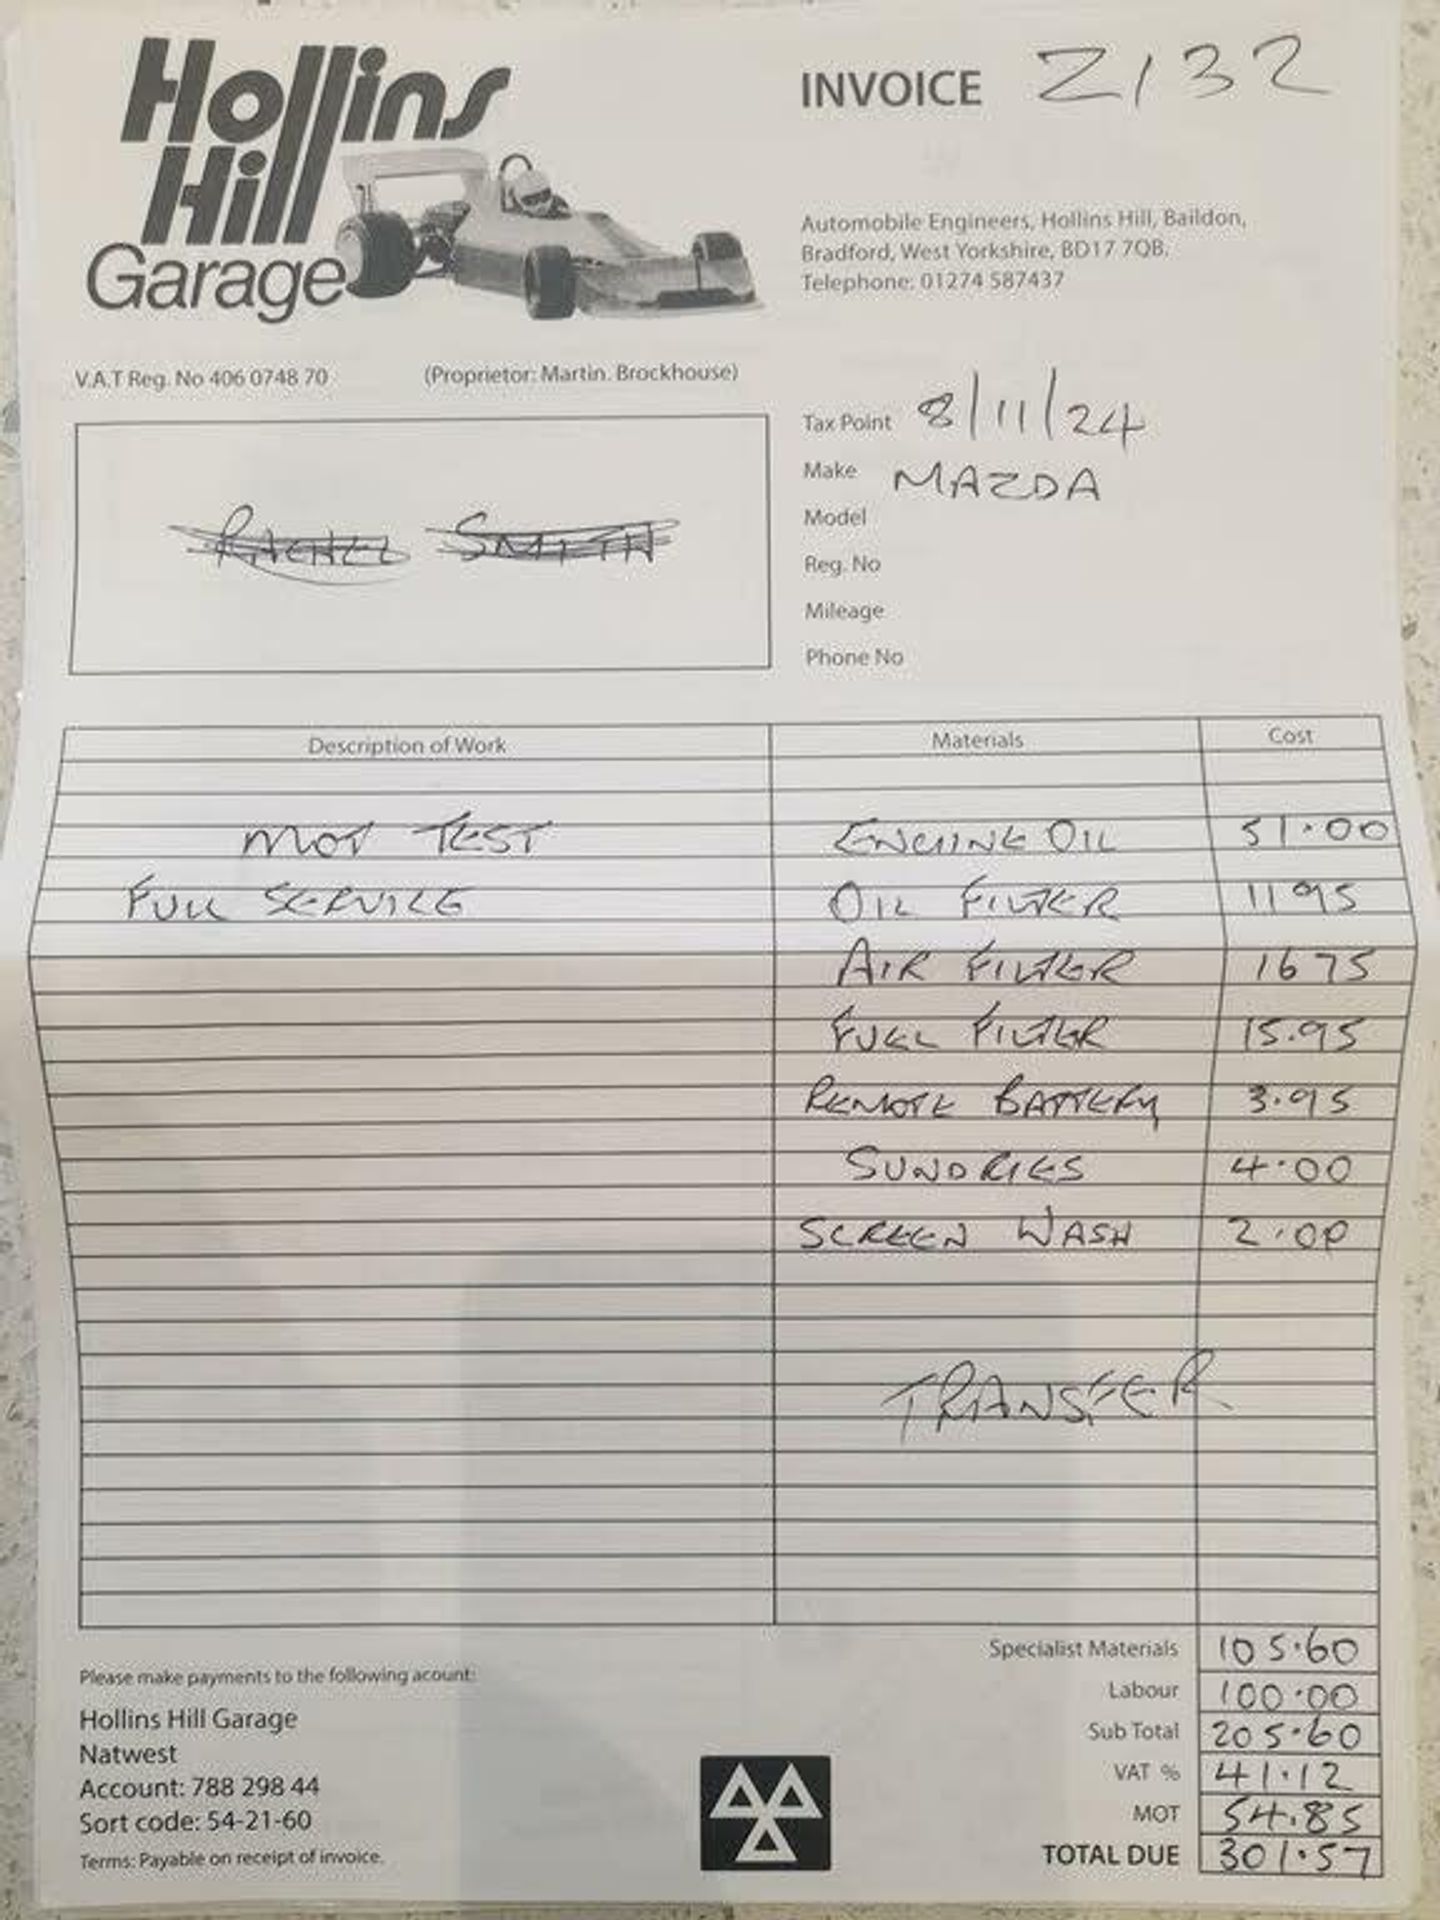 Hollins
Hill
Garage
INVOICE 2132
Automobile Engineers, Hollins Hill, Baildon,
Bradford, West Yorkshire, BD17 7QB.
Telephone: 01274 587437
V.A.T Reg. No 406 0748 70 (Proprietor: Martin. Brockhouse)
RACHEL SMITH
Tax Point 8/11/24
Make MAZDA
Model
Reg. No
Mileage
Phone No
Description of Work Materials Cost
MOT TEST ENGINE OIL 51.00
FULL SERVICE OIL FILTER 11 95
AIR FILTER 16 75
FUEL FILTER 15.95
REMOTE BATTERY 3.95
SUNDRIES 4.00
SCREEN WASH 2.00
TRANSFER
Specialist Materials 105.60
Labour 100.00
Sub Total 205.60
VAT % 41.12
MOT 54.85
TOTAL DUE 301.57
Please make payments to the following acount:
Hollins Hill Garage
Natwest
Account: 788 298 44
Sort code: 54-21-60
Terms: Payable on receipt of invoice.